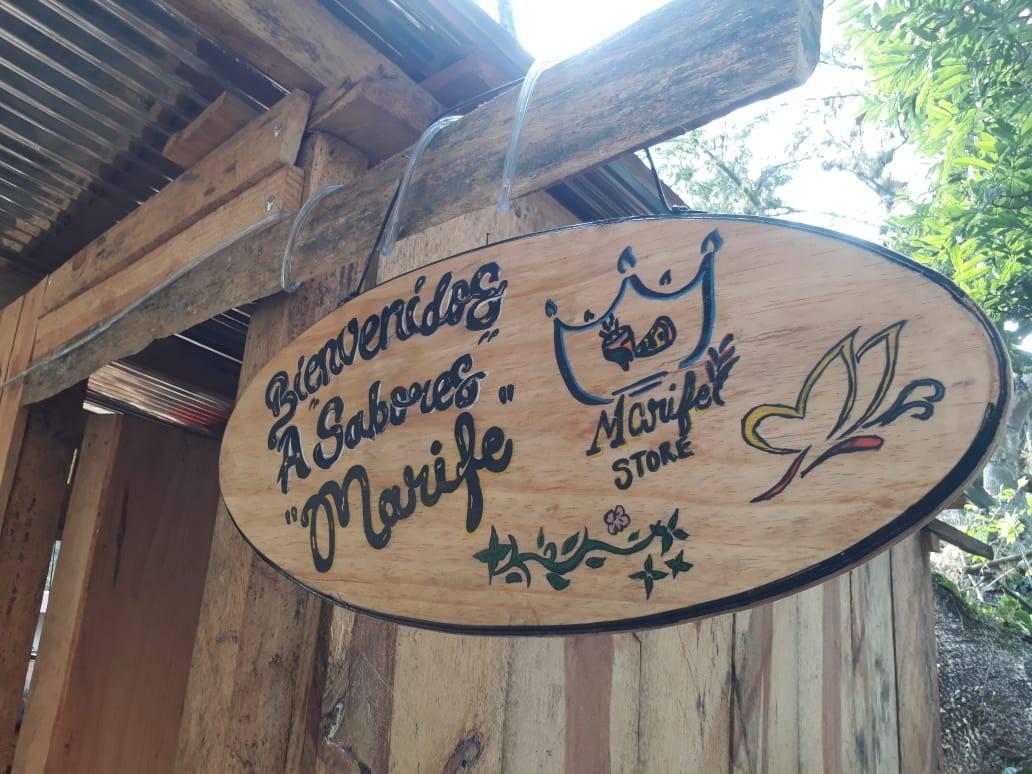 Bienvenidos
A "Sabores"
"Marife"
Marife
STORE